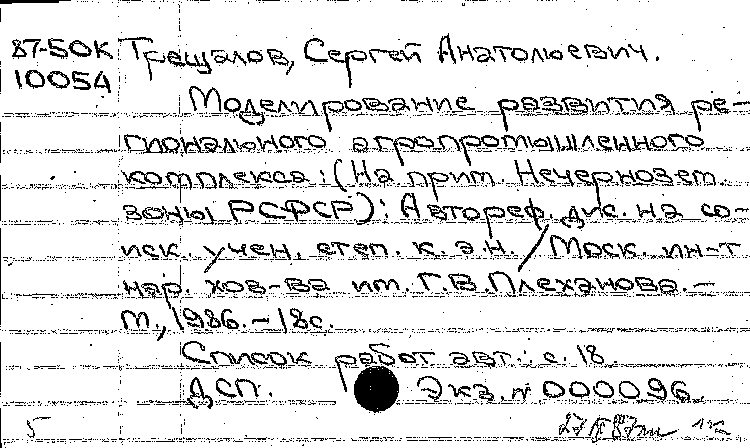 87-50К Трещалов, Сергей Анатольевич.
10054
Моделирование развития ре-
гионального агропромышленного
комплекса: (На прим. Нечернозем.
зоны РСФСР): Автореф. дис. на со-
иск. учен. степ. к. э. н. / Моск. ин-т
нар. хоз-ва им. Г. В. Плеханова. –
М., 1986. – 18с.
Список работ авт.: с. 18.
ДСП. Экз. № 000096
5